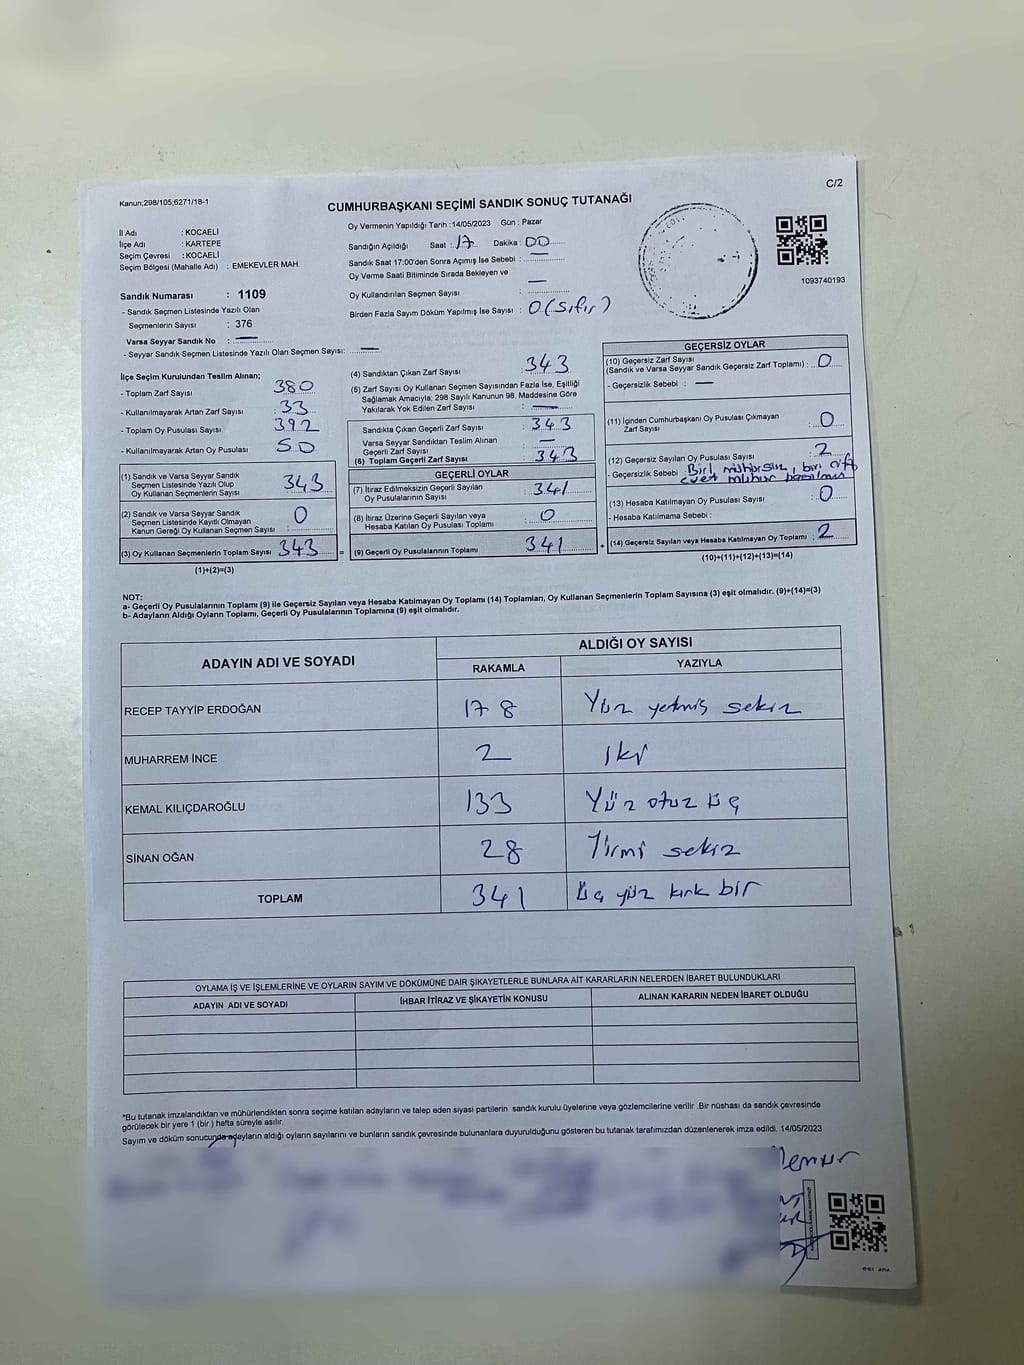 C/2
Kanun;298/105;6271/18-1
CUMHURBAŞKANI SEÇİMİ SANDIK SONUÇ TUTANAĞI
İl Adı : KOCAELİ
İlçe Adı : KARTEPE
Seçim Çevresi : KOCAELİ
Seçim Bölgesi (Mahalle Adı) : EMEKEVLER MAH.
Sandık Numarası : 1109
- Sandık Seçmen Listesinde Yazılı Olan
Seçmenlerin Sayısı : 376
Varsa Seyyar Sandık No : —
- Seyyar Sandık Seçmen Listesinde Yazılı Olan Seçmen Sayısı: —
Oy Vermenin Yapıldığı Tarih :14/05/2023 Gün : Pazar
Sandığın Açıldığı Saat : 17 Dakika : 00
Sandık Saat 17:00'den Sonra Açımış İse Sebebi : —
Oy Verme Saati Bitiminde Sırada Bekleyen ve
Oy Kullandırılan Seçmen Sayısı : —
Birden Fazla Sayım Döküm Yapılmış İse Sayısı : 0 (Sıfır)
1093740193
İlçe Seçim Kurulundan Teslim Alınan;
- Toplam Zarf Sayısı 380
- Kullanılmayarak Artan Zarf Sayısı 33
- Toplam Oy Pusulası Sayısı 392
- Kullanılmayarak Artan Oy Pusulası 50
(1) Sandık ve Varsa Seyyar Sandık
Seçmen Listesinde Yazılı Olup
Oy Kullanan Seçmenlerin Sayısı 343
(2) Sandık ve Varsa Seyyar Sandık
Seçmen Listesinde Kayıtlı Olmayan
Kanun Gereği Oy Kullanan Seçmen Sayısı 0
(3) Oy Kullanan Seçmenlerin Toplam Sayısı 343 =
(1)+(2)=(3)
(4) Sandıktan Çıkan Zarf Sayısı : 343
(5) Zarf Sayısı Oy Kullanan Seçmen Sayısından Fazla İse, Eşitliği
Sağlamak Amacıyla; 298 Sayılı Kanunun 98. Maddesine Göre
Yakılarak Yok Edilen Zarf Sayısı : —
Sandıkta Çıkan Geçerli Zarf Sayısı : 343
Varsa Seyyar Sandıktan Teslim Alınan
Geçerli Zarf Sayısı : —
(6) Toplam Geçerli Zarf Sayısı : 343
GEÇERLİ OYLAR
(7) İtiraz Edilmeksizin Geçerli Sayılan
Oy Pusulalarının Sayısı : 341
(8) İtiraz Üzerine Geçerli Sayılan veya
Hesaba Katılan Oy Pusulası Toplamı : 0
(9) Geçerli Oy Pusulalarının Toplamı 341 +
GEÇERSİZ OYLAR
(10) Geçersiz Zarf Sayısı
(Sandık ve Varsa Seyyar Sandık Geçersiz Zarf Toplamı) : 0
- Geçersizlik Sebebi : —
(11) İçinden Cumhurbaşkanı Oy Pusulası Çıkmayan
Zarf Sayısı : 0
(12) Geçersiz Sayılan Oy Pusulası Sayısı : 2
- Geçersizlik Sebebi : Biri mühürsüz, biri çift
evet mühür basılmış
(13) Hesaba Katılmayan Oy Pusulası Sayısı : 0
- Hesaba Katılmama Sebebi :
(14) Geçersiz Sayılan veya Hesaba Katılmayan Oy Toplamı : 2
(10)+(11)+(12)+(13)=(14)
NOT:
a- Geçerli Oy Pusulalarının Toplamı (9) ile Geçersiz Sayılan veya Hesaba Katılmayan Oy Toplamı (14) Toplamları, Oy Kullanan Seçmenlerin Toplam Sayısına (3) eşit olmalıdır. (9)+(14)=(3)
b- Adayların Aldığı Oyların Toplamı, Geçerli Oy Pusulalarının Toplamına (9) eşit olmalıdır.
ADAYIN ADI VE SOYADI ALDIĞI OY SAYISI
RAKAMLA YAZIYLA
RECEP TAYYİP ERDOĞAN 178 Yüz yetmiş sekiz
MUHARREM İNCE 2 iki
KEMAL KILIÇDAROĞLU 133 Yüz otuz üç
SİNAN OĞAN 28 Yirmi sekiz
TOPLAM 341 Üç yüz kırk bir
OYLAMA İŞ VE İŞLEMLERİNE VE OYLARIN SAYIM VE DÖKÜMÜNE DAİR ŞİKAYETLERLE BUNLARA AİT KARARLARIN NELERDEN İBARET BULUNDUKLARI
ADAYIN ADI VE SOYADI İHBAR İTİRAZ VE ŞİKAYETİN KONUSU ALINAN KARARIN NEDEN İBARET OLDUĞU
*Bu tutanak imzalandıktan ve mühürlendikten sonra seçime katılan adayların ve talep eden siyasi partilerin sandık kurulu üyelerine veya gözlemcilerine verilir .Bir nüshası da sandık çevresinde
görülecek bir yere 1 (bir ) hafta süreyle asılır.
Sayım ve döküm sonucunda adayların aldığı oyların sayılarını ve bunların sandık çevresinde bulunanlara duyurulduğunu gösteren bu tutanak tarafımızdan düzenlenerek imza edildi. 14/05/2023
Memur